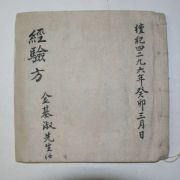 檀紀四二九六年癸卯三月日
經驗方
金基淑先生